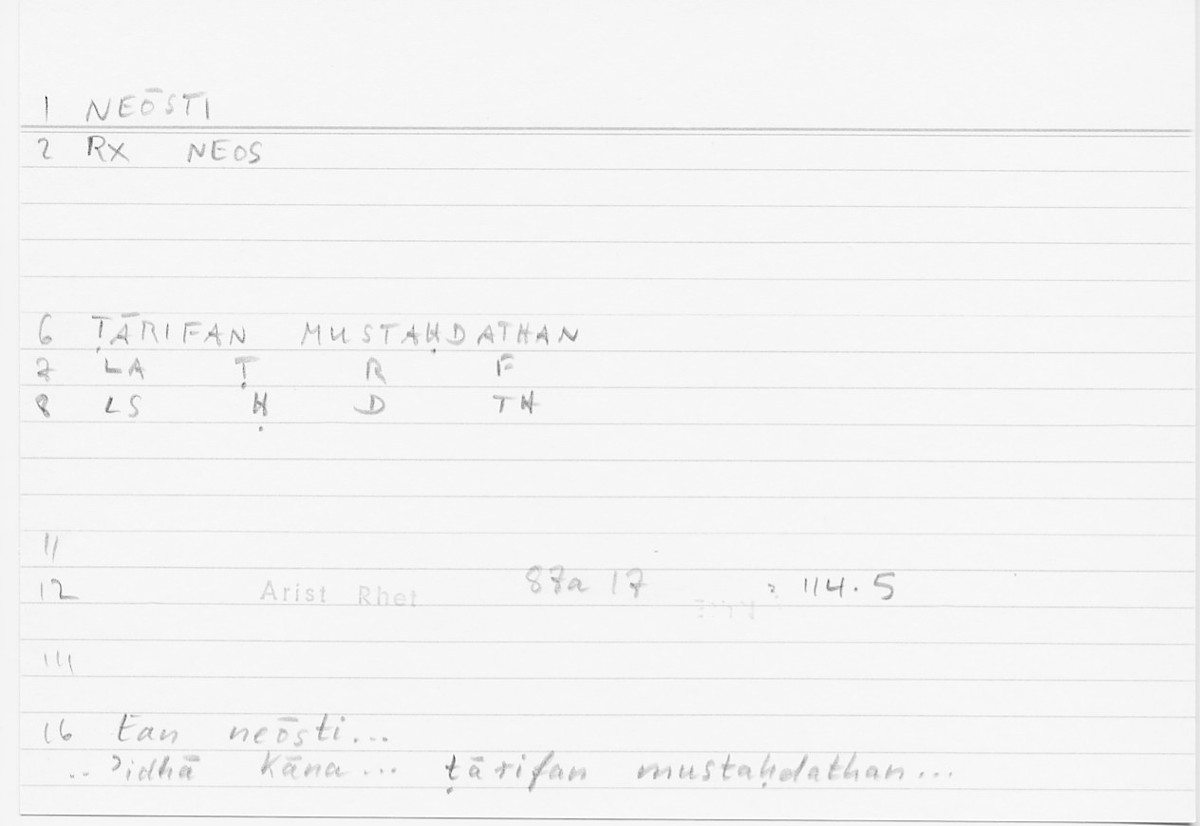 1 NEŌSTI
2 RX NEOS
6 ṬĀRIFAN MUSTAḤDATHAN
7 LA Ṭ R F
8 LS Ḥ D TH
11
12 Arist Rhet 87a 17 : 114.5
111
16 ean neōsti...
.. ʾidhā kāna... ṭārifan mustaḥdathan...